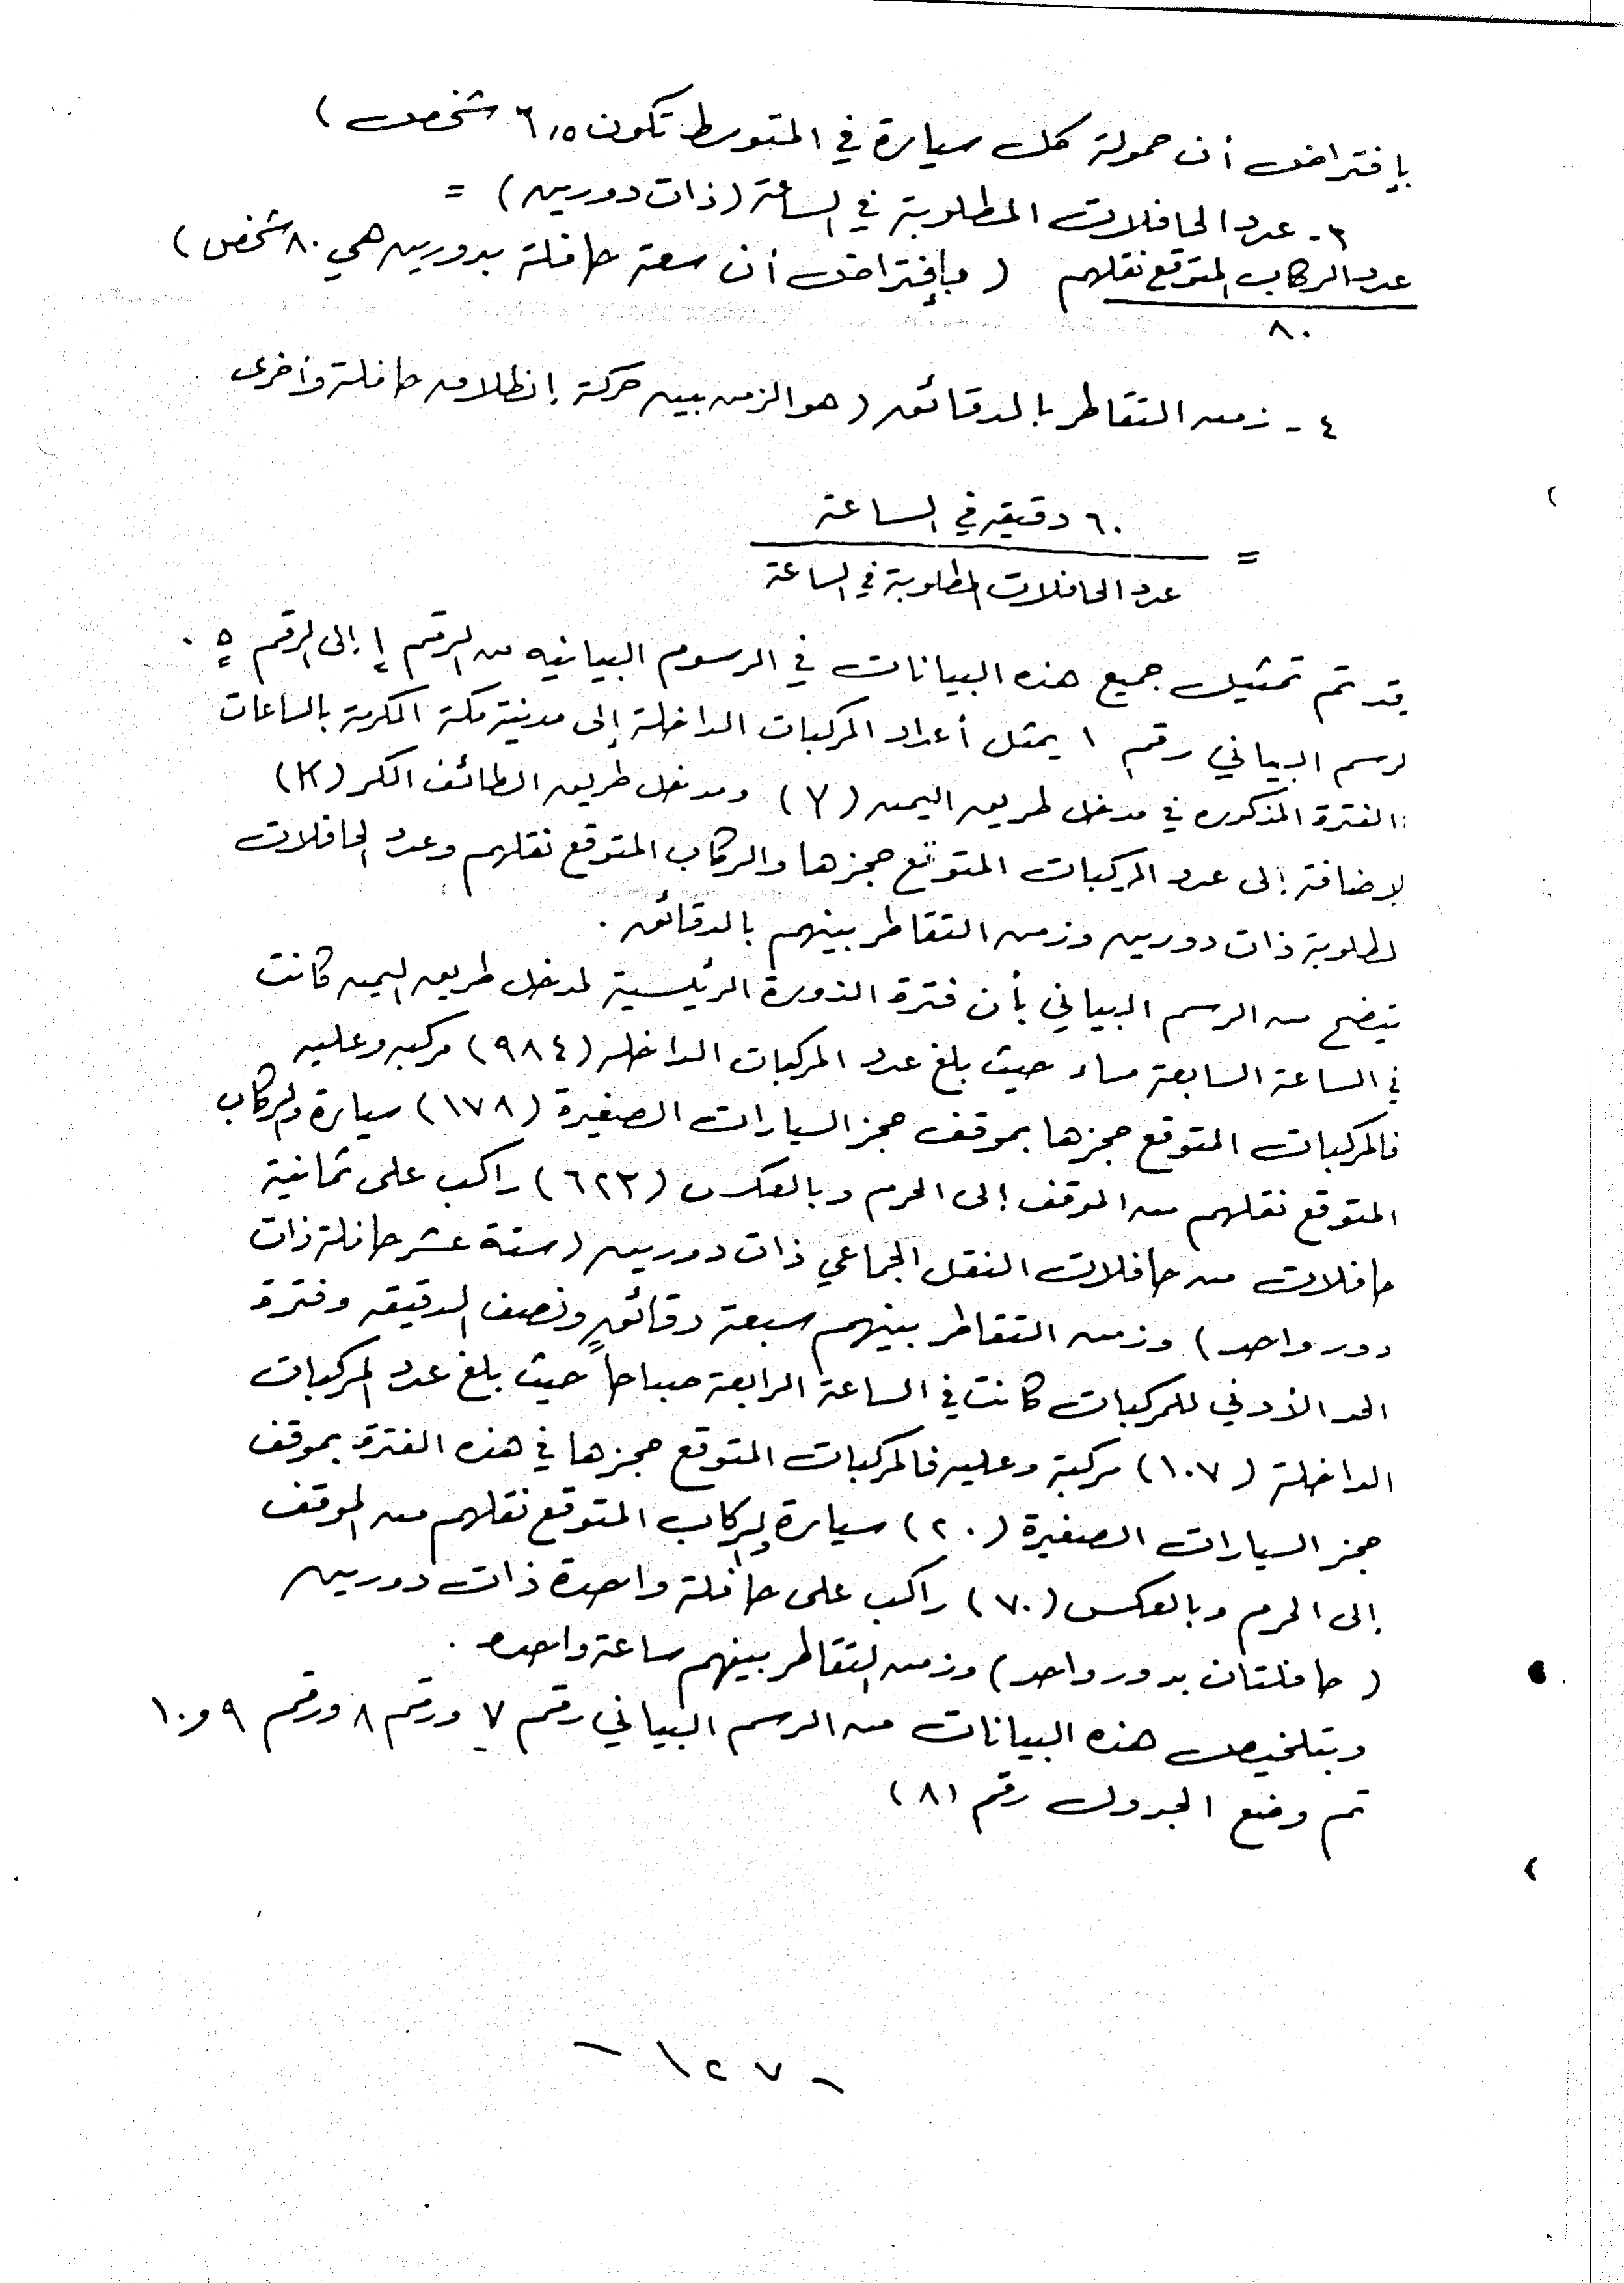 بإفتراض أن حمولة كل سيارة في المتوسط تكون ٦,٥ شخص )
٣- عدد الحافلات المطلوبة في الساعة (ذات دورين) =
عدد الركاب المتوقع نقلهم ( بإفتراض أن سعة حافلة بدورين هي ٨٠ شخص )
٨٠
٤- زمن التقاطر بالدقائق (هو الزمن بين حركة إنطلاق حافلة وأخرى
= ٦٠ دقيقه في الساعة
عدد الحافلات المطلوبة في الساعة
قد تم تمثيل جميع هذه البيانات في الرسوم البيانيه من الرقم إلى الرقم ٥ .
لرسم البياني رقم ١ يمثل أعداد المركبات الداخلة إلى مدينة مكة المكرمة بالساعات
الفترة المذكوره في مدخل طريق اليمن (٧) ومدخل طريق الطائف الكر (K)
لإضافة إلى عدد المركبات المتوقع حجزها والركاب المتوقع نقلهم وعدد الحافلات
لمطلوبة ذات دورين وزمن التقاطر بينهم بالدقائق .
يتضح من الرسم البياني بأن فترة الذورة الرئيسية لمدخل طريق اليمن كانت
في الساعة السابعة مساء حيث بلغ عدد المركبات الداخله (٩٨٤) مركبه وعليه
فالمركبات المتوقع حجزها بموقف حجز السيارات الصغيرة (١٧٨) سيارة والركاب
المتوقع نقلهم من الموقف إلى الحرم وبالعكس (٦٢٣) راكب على ثمانية
حافلات من حافلات النقل الجماعي ذات دورين (ستة عشر حافلة ذات
دور واحد) وزمن التقاطر بينهم سبعة دقائق ونصف الدقيقه وفترة
الحد الأدنى للمركبات كانت في الساعة الرابعة صباحاً حيث بلغ عدد المركبات
الداخلة (١٠٧) مركبة وعليه فالمركبات المتوقع حجزها في هذه الفترة بموقف
حجز السيارات الصغيرة (٢٠) سيارة والركاب المتوقع نقلهم من الموقف
إلى الحرم وبالعكس (٧٠) راكب على حافلة واحدة ذات دورين
(حافلتان بدور واحد) وزمن التقاطر بينهم ساعة واحده .
وبتلخيص هذه البيانات من الرسم البياني رقم ٧ ورقم ٨ ورقم ٩ و١٠
تم وضع الجدول رقم (٨)
- ١٢٧ -